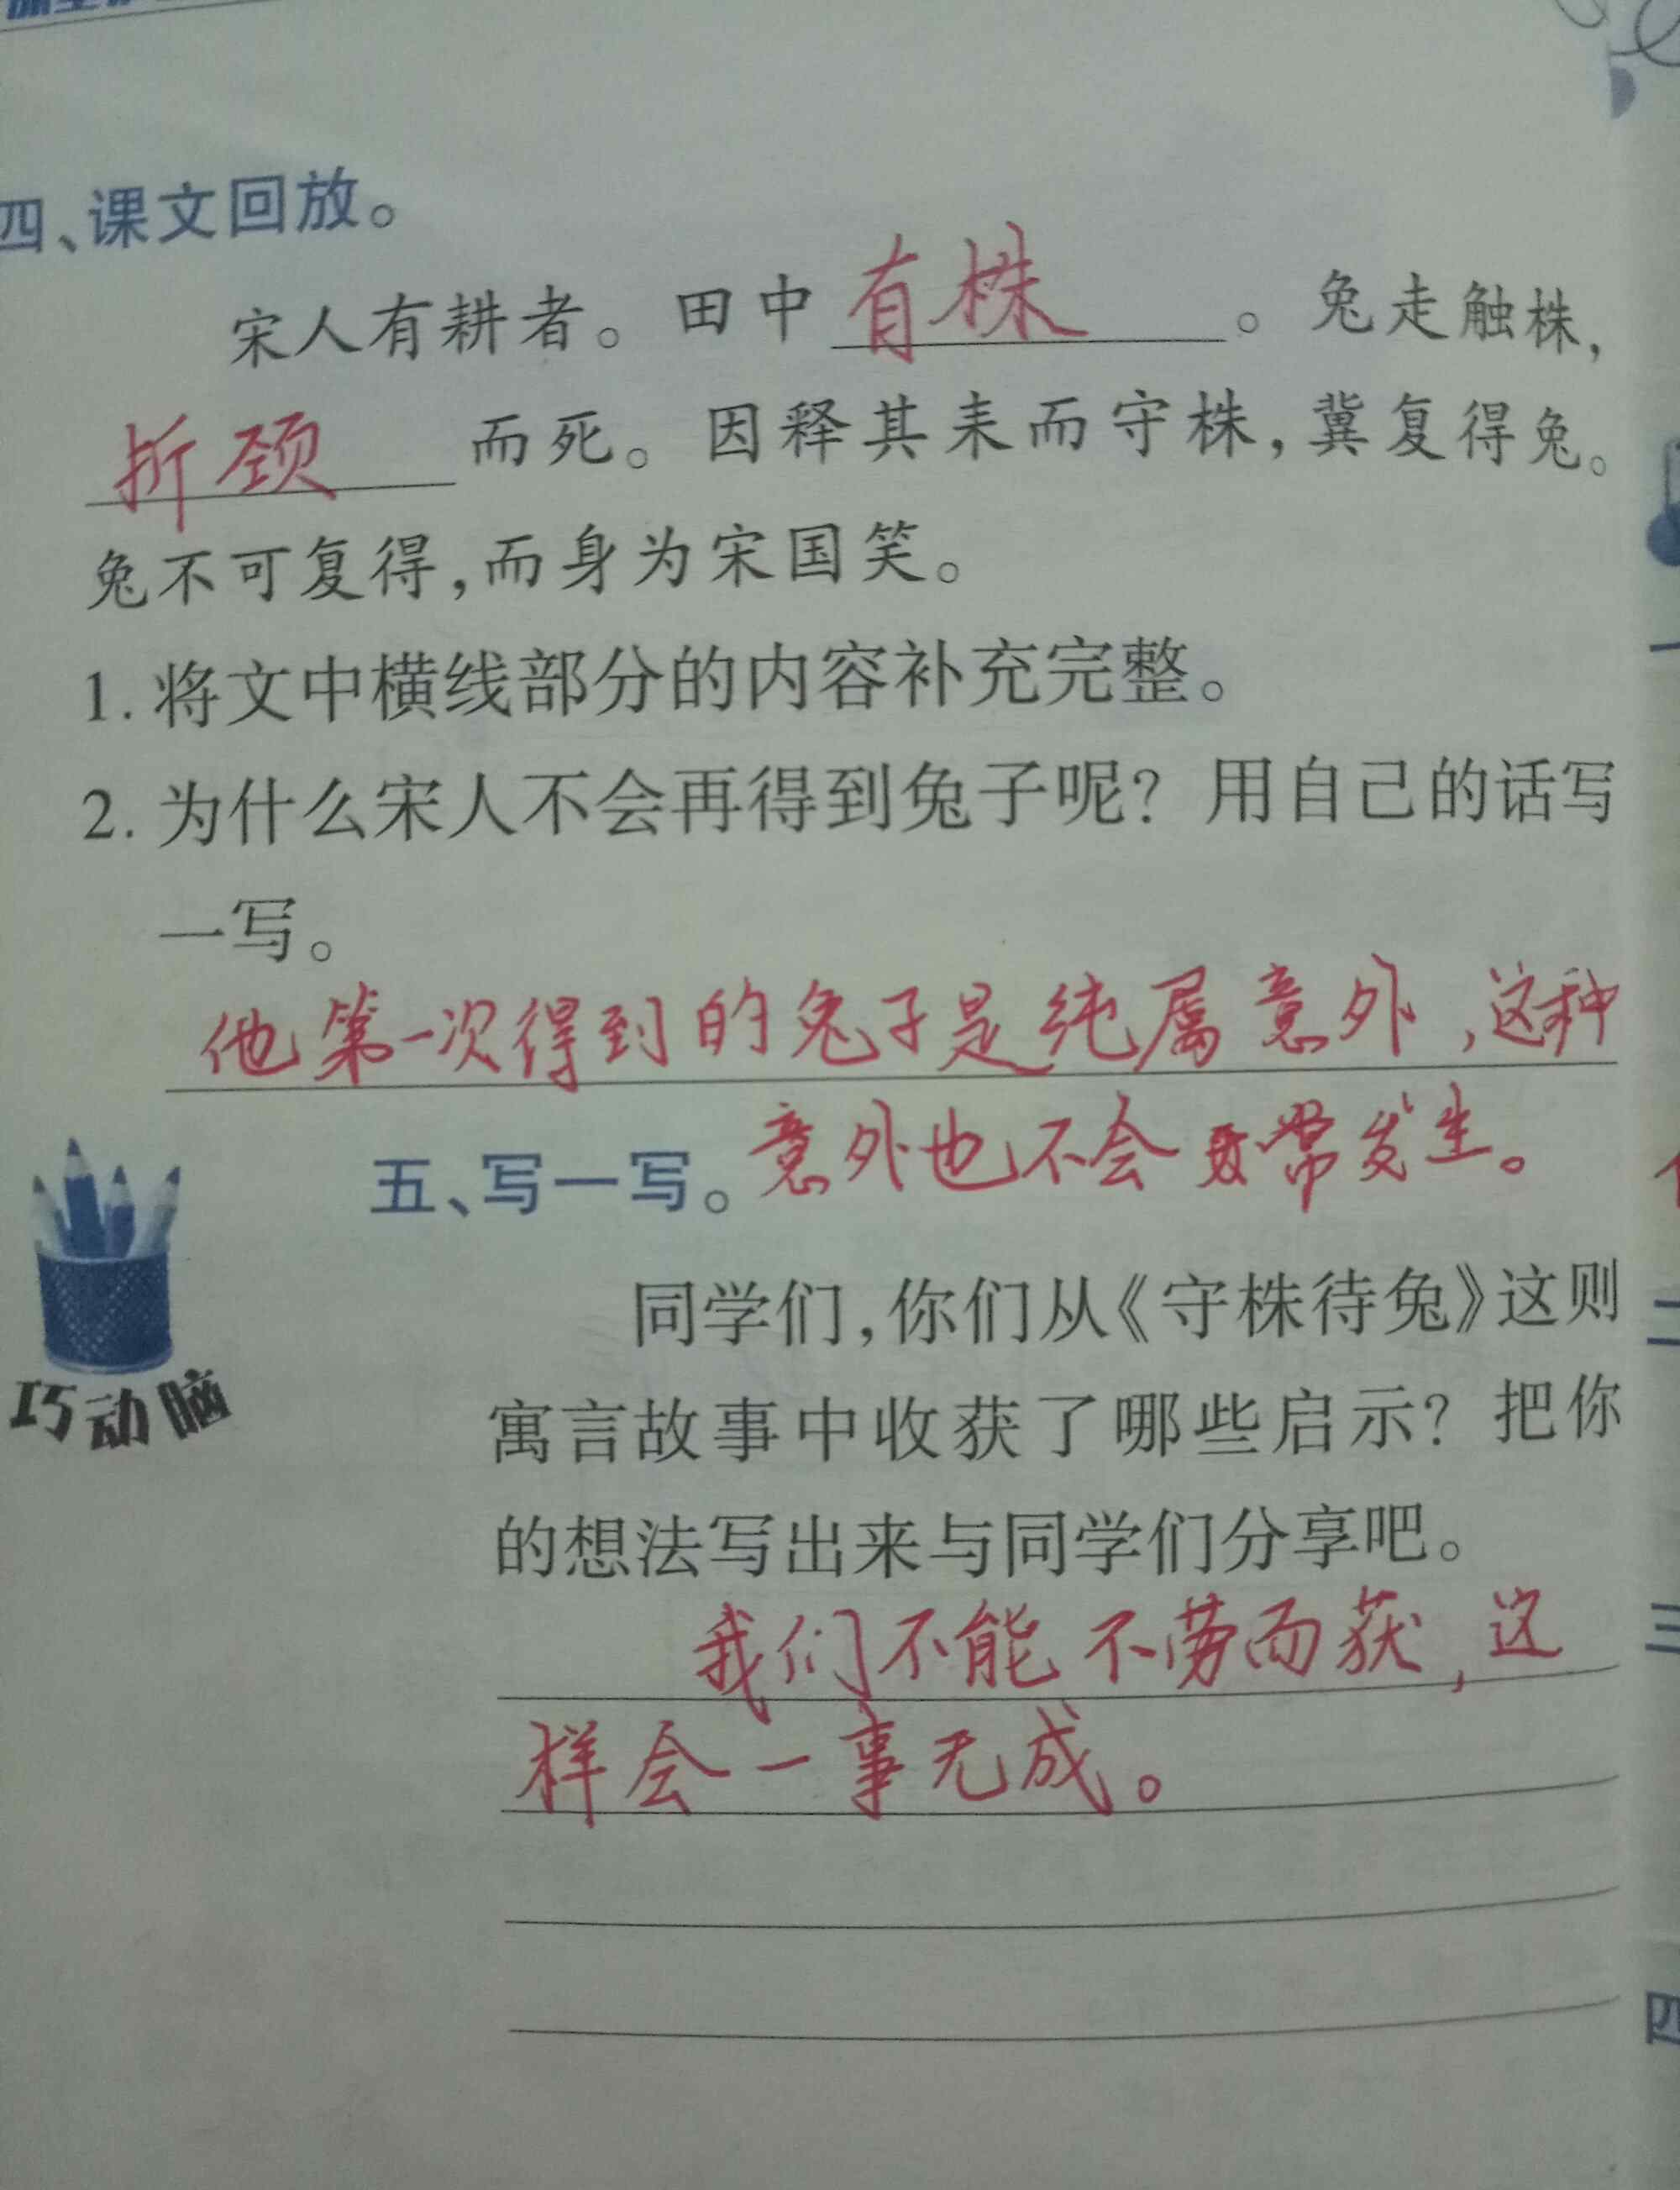 四、课文回放。
宋人有耕者。田中有株。兔走触株,
折颈而死。因释其耒而守株,冀复得兔。
兔不可复得,而身为宋国笑。
1. 将文中横线部分的内容补充完整。
2. 为什么宋人不会再得到兔子呢？用自己的话写
一写。
他第一次得到的兔子是纯属意外,这种
意外也不会常发生。
五、写一写。
巧动脑
同学们,你们从《守株待兔》这则
寓言故事中收获了哪些启示？把你
的想法写出来与同学们分享吧。
我们不能不劳而获,这
样会一事无成。
一
二
三
四